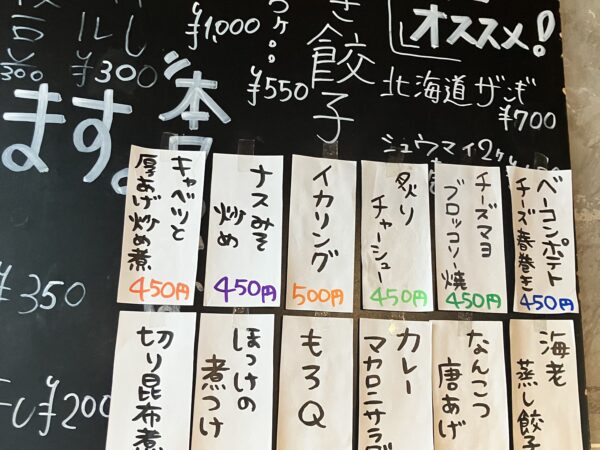 オススメ!
北海道ザンギ
¥700
シュウマイ2ケ
餃子
¥550
¥1,000
¥300
本
ます。
¥350
¥200
ベーコンポテト
チーズ春巻き
450円
チーズマヨ
ブロッコリー焼
450円
炙り
チャーシュー
450円
イカリング
500円
ナスみそ
炒め
450円
キャベツと
厚あげ炒め煮
450円
海老
蒸し餃子
なんこつ
唐あげ
カレー
マカロニサラダ
もろQ
ほっけの
煮つけ
切り昆布煮